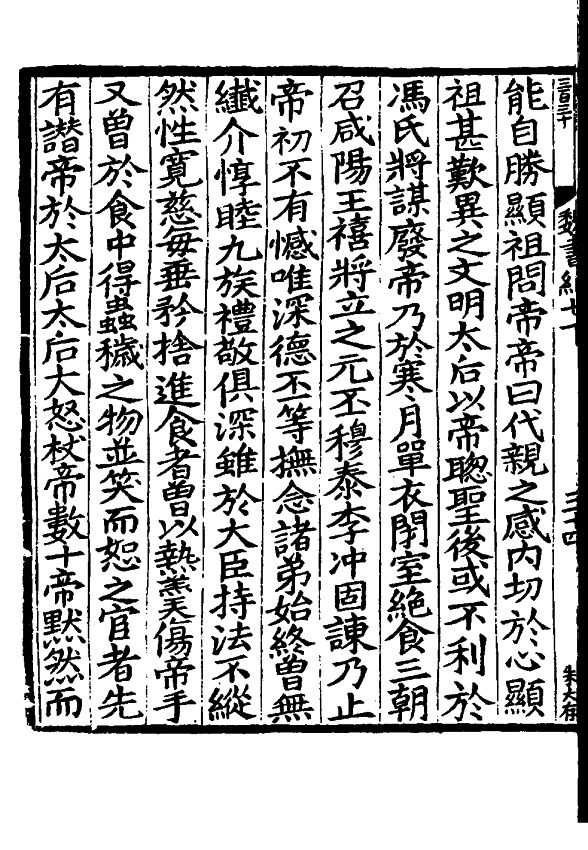 能自勝顯祖問帝帝曰代親之感內切於心顯
祖甚歎異之文明太后以帝聰聖後或不利於
馮氏將謀廢帝乃於寒月單衣閉室絕食三朝
召咸陽王禧將立之元丕穆泰李冲固諫乃止
帝初不有憾唯深德丕等撫念諸弟始終曾無
纖介惇睦九族禮敬俱深雖於大臣持法不縱
然性寬慈每垂矜捨進食者曾以熱羹傷帝手
又曾於食中得蟲穢之物並笑而恕之宦者先
有譖帝於太后太后大怒杖帝數十帝默然而